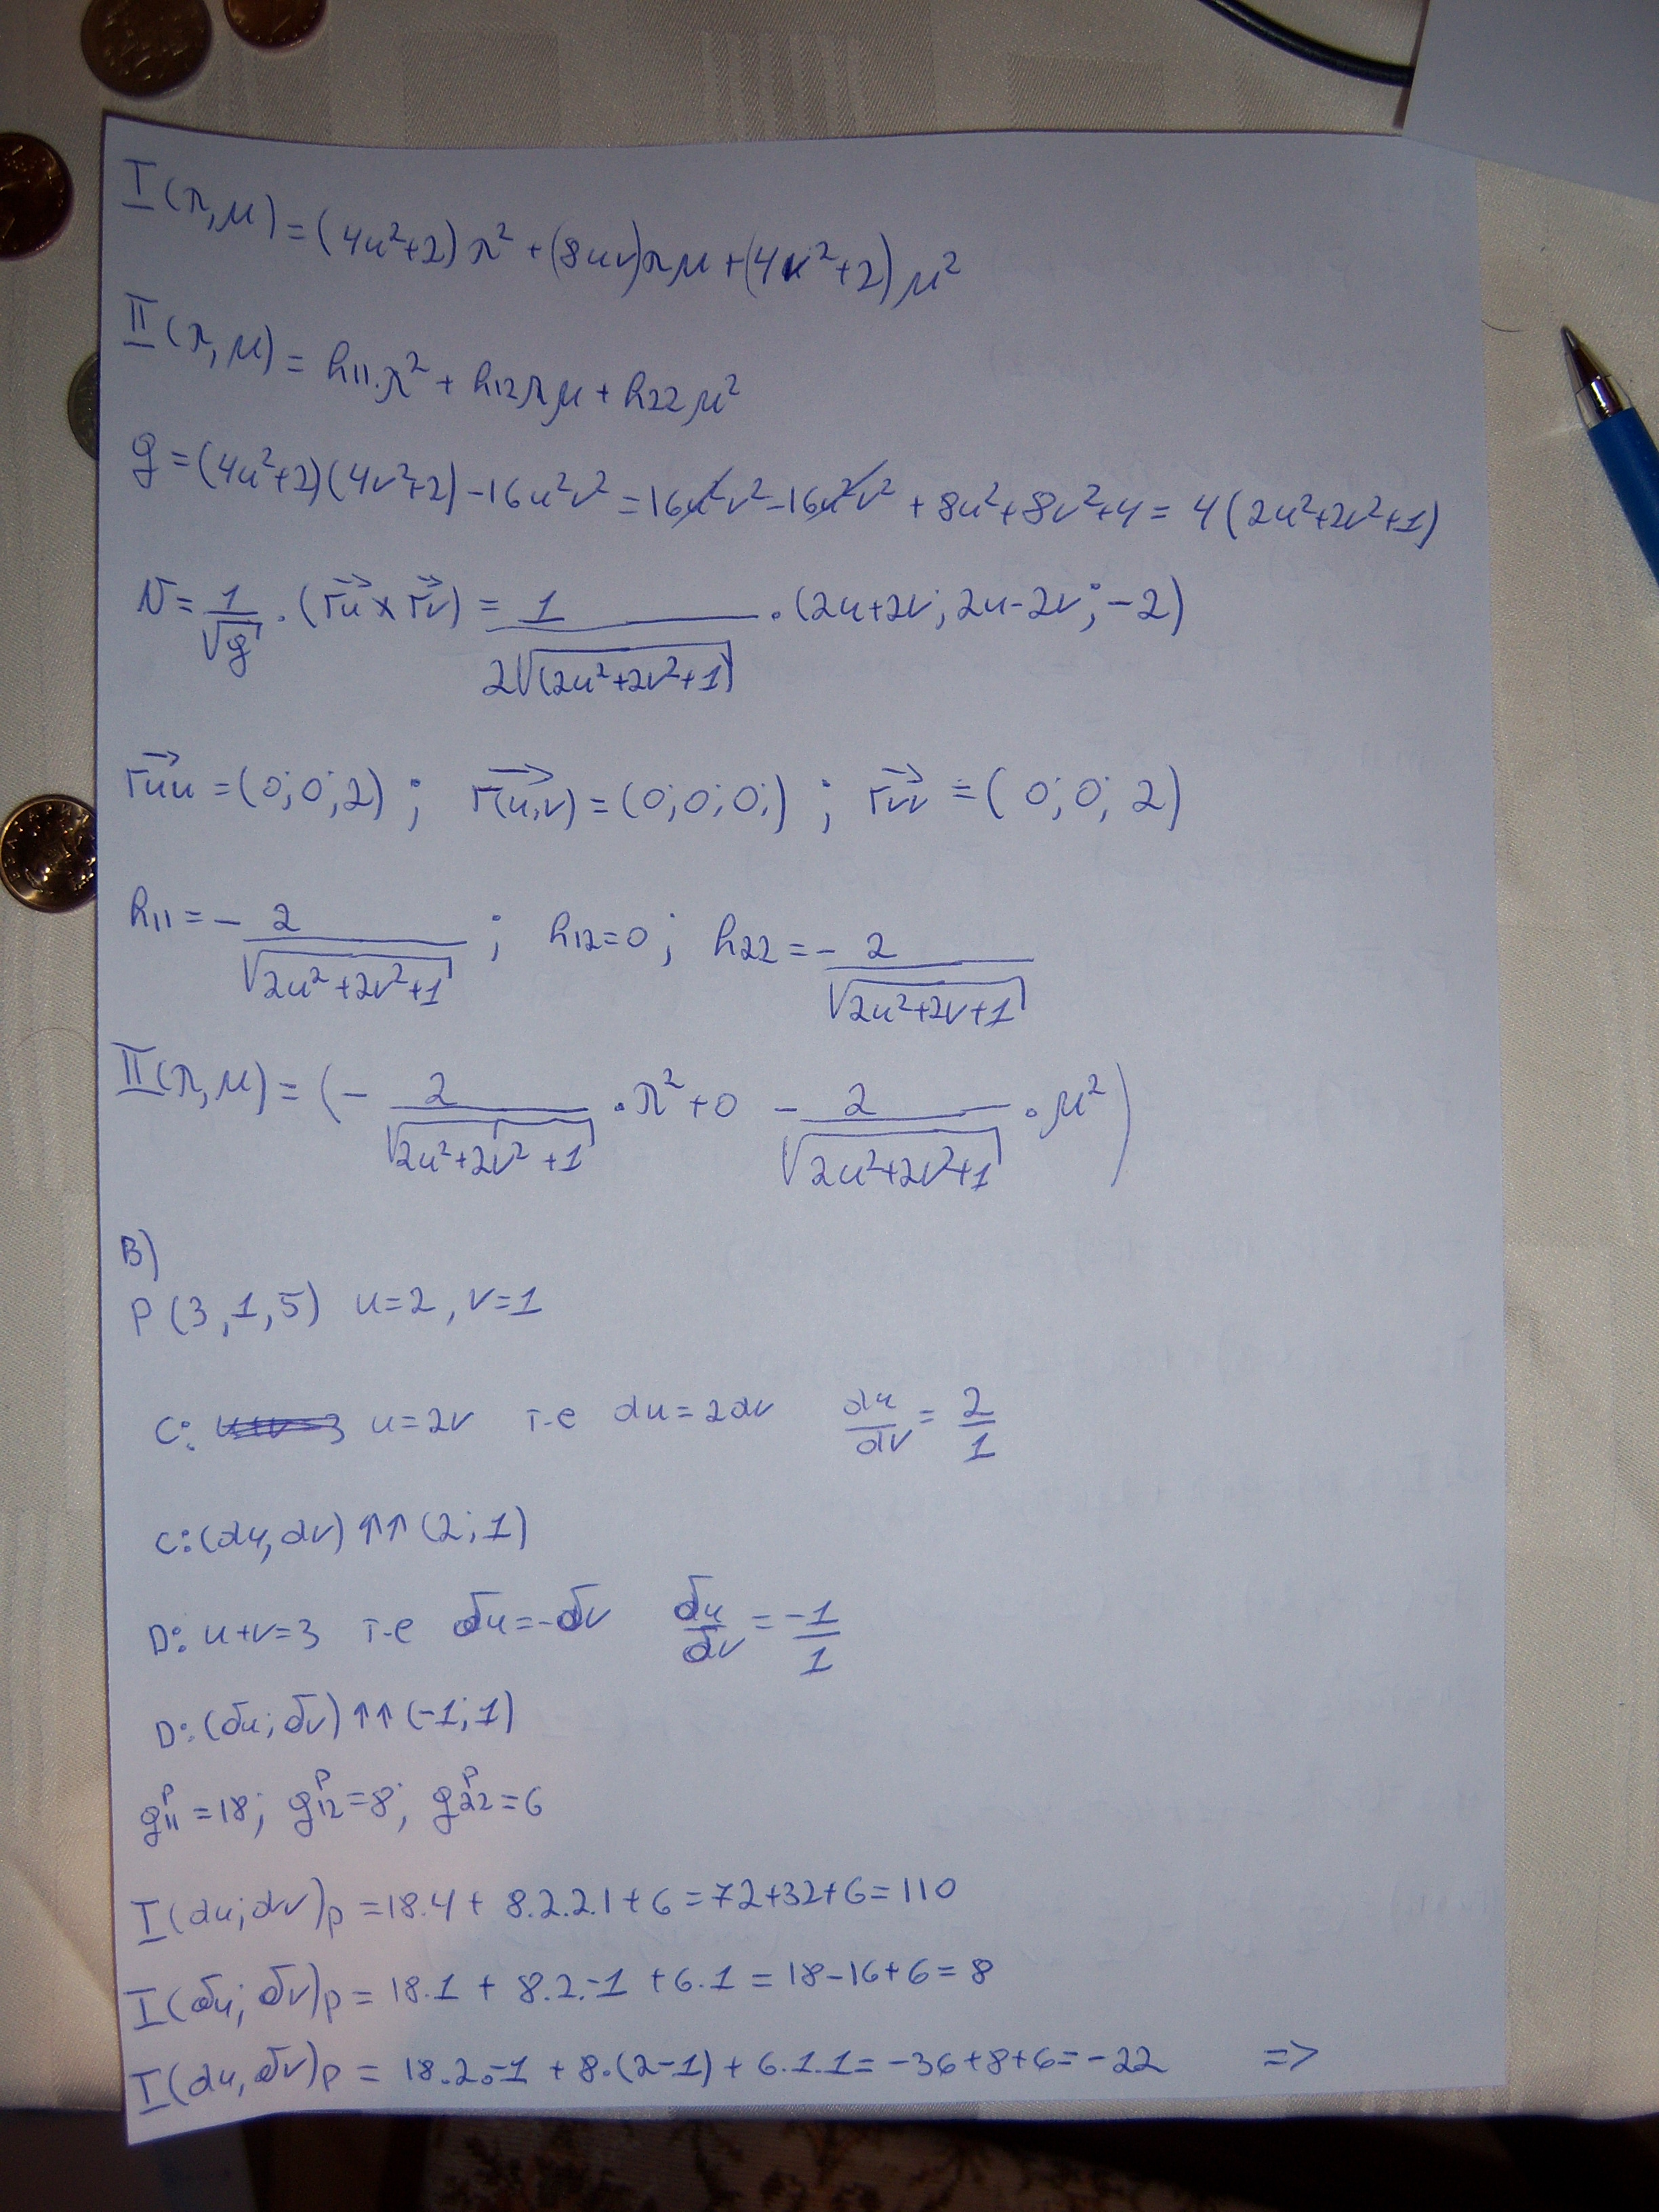 I(λ,μ)=(4u²+2)λ²+(8uv)λμ+(4v²+2)μ²
II(λ,μ)=h11.λ²+h12λμ+h22μ²
g=(4u²+2)(4v²+2)-16u²v²=16u²v²-16u²v²+8u²+8v²+4=4(2u²+2v²+1)
N=1/√g.(ru×rv)=1/2√(2u²+2v²+1).(2u+2v;2u-2v;-2)
ruu=(0;0;2); r(u,v)=(0;0;0;); rvv=(0;0;2)
h11=-2/√2u²+2v²+1; h12=0; h22=-2/√2u²+2v+1
II(λ,μ)=(-2/√2u²+2v²+1.λ²+0-2/√2u²+2v²+1.μ²)
B)
P(3,1,5) u=2,v=1
C: u=2v i-e du=2dv du/dv=2/1
C:(du,dv)↑↑(2;1)
D:u+v=3 i-e δu=-δv δu/δv=-1/1
D:(δu;δv)↑↑(-1;1)
g11ᴾ=18; g12ᴾ=8; g22ᴾ=6
I(du;dv)p=18.4+8.2.2.1+6=72+32+6=110
I(δu;δv)p=18.1+8.2.-1+6.1=18-16+6=8
I(du,δv)p=18.2.-1+8.(2-1)+6.1.1=-36+8+6=-22 =>